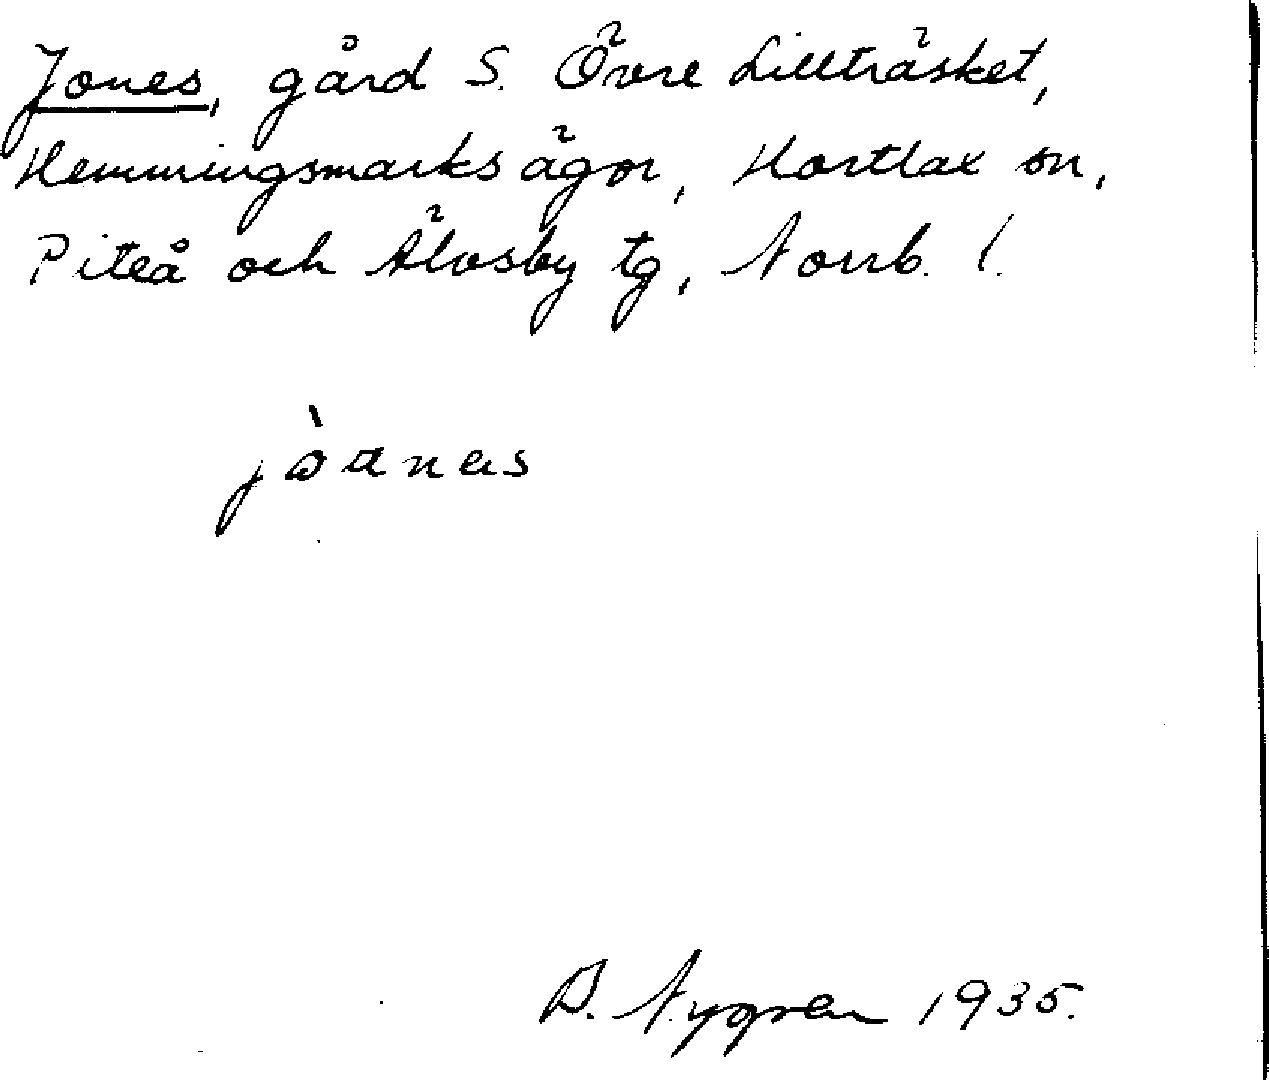 Jones, gård S. Övre Lillträsket,
Hemmingsmarks ägor, Hortlax sn,
Piteå och Älvsby tg, Norrb. l.
B. Nygren 1935.